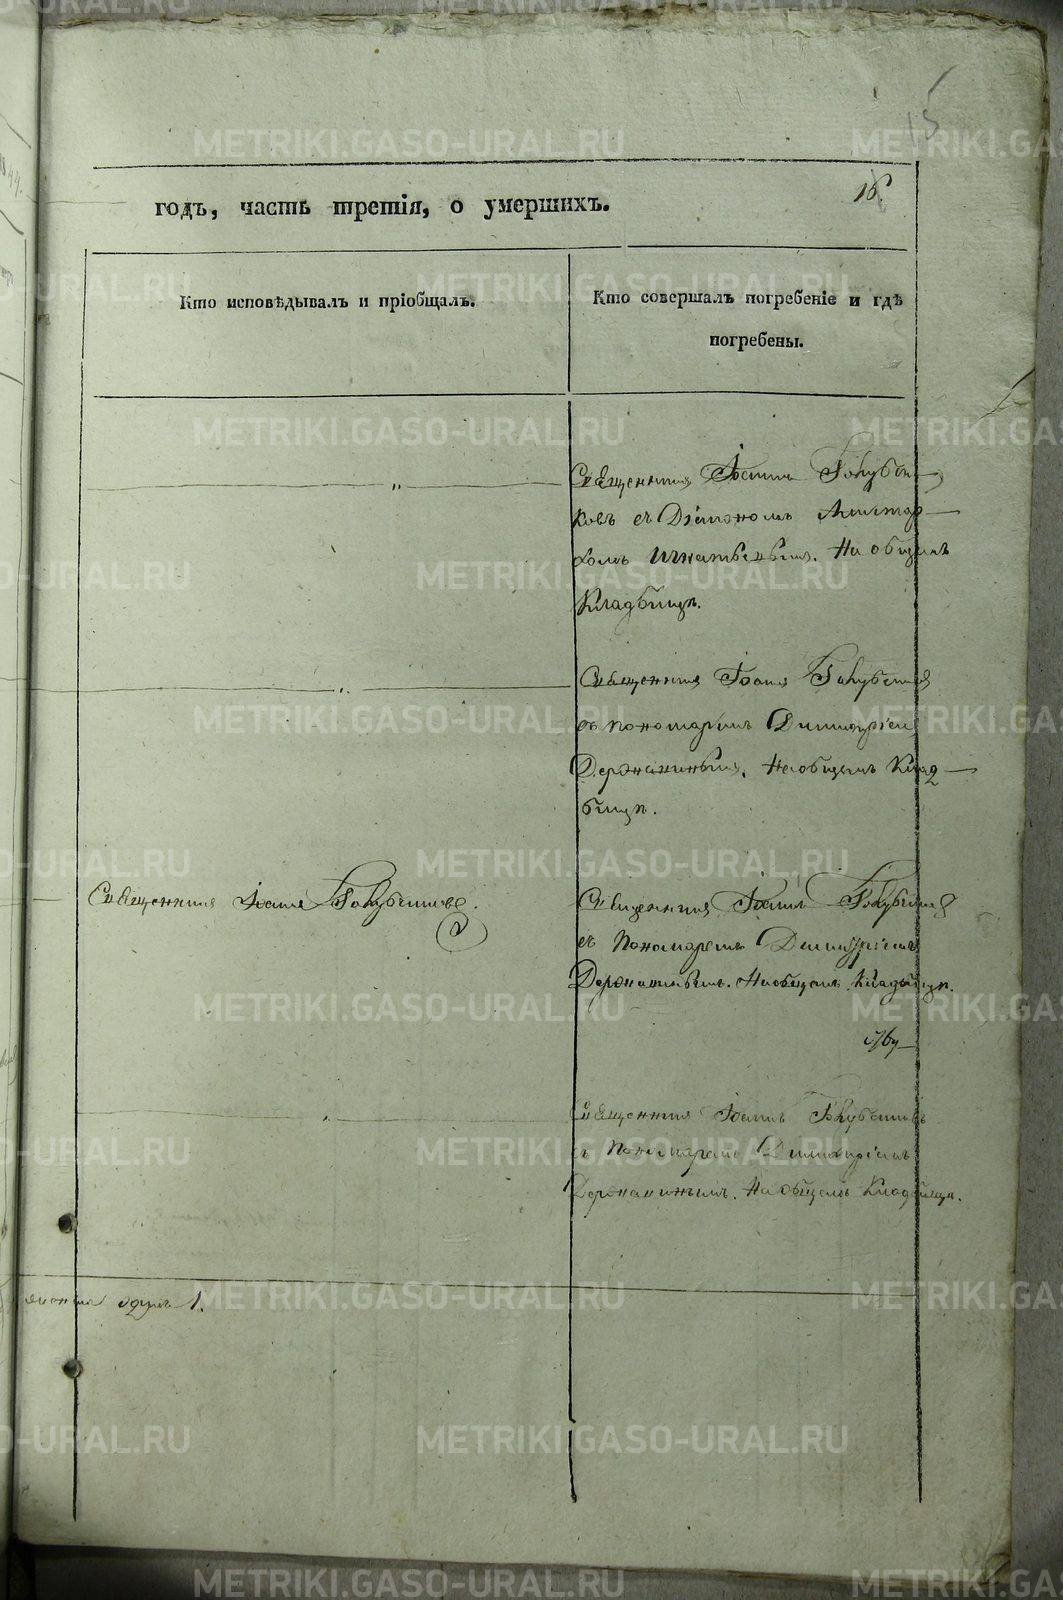 15
годъ, часть третія, о умершихъ.
Кто исповѣдывалъ и пріобщалъ.
Кто совершалъ погребеніе и гдѣ
погребены.
Священникъ Іоаннъ Голубчи-
ковъ съ Діакономъ
Игнатьевымъ. На общемъ
Кладбищѣ.
Священникъ Іоаннъ Голубчиковъ
съ пономаремъ Димитріемъ
Держанинымъ. На общемъ Клад-
бищѣ.
Священникъ Іоаннъ Голубчиковъ.
Священникъ Іоаннъ Голубчиковъ
съ Пономаремъ Димитріемъ
Держанинымъ. На общемъ Кладбищѣ.
Священникъ Іоаннъ Голубчиковъ
съ Пономаремъ Димитріемъ
Держанинымъ. На общемъ Кладбищѣ.
одинъ 1.
METRIKI.GASO-URAL.RU